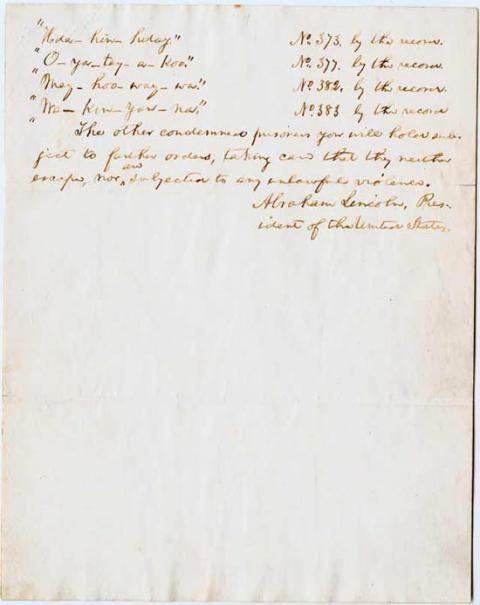 "Hda-hin-hday." No. 373. by the record.
"O-ya-tay-a-koo." No. 377. by the record.
"May-hoo-way-wa." No. 382. by the record.
"Wa-kin-yan-na." No. 383 by the record
The other condemned prisoners you will hold sub-
ject to further orders, taking care that they neither
escape, nor are subjected to any unlawful violence.
Abraham Lincoln, Pres-
ident of the United States.